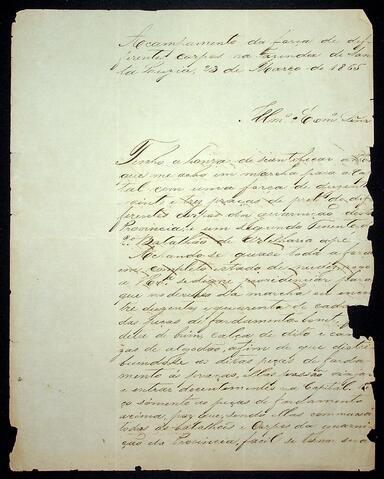 Acampamento da força de dif
ferentes corpos na Fazenda de San
ta Luzia, 23 de Março de 1865
Illmo. Exmo. Senr.
Tenho a honra de scientificar a V.Ex.
que me acho em marcha para a Ca
tal com uma força de duzen
vinte e tres praças de pret de dif
ferentes corpos da guarnição des
Provincia, e um segundo Tenente d
2o. Batalhão de Artilharia a pé.
Achando-se quasi toda a força
em completo estado de nudez, rogo
a V.Ex. se digne providenciar para
que no decurso da marcha encontre
tre duzentas e quarenta de cada
das peças de fardamento bonet,
deta de brim, calças de dito e cami
zas de algodão, afim de que distri
buindo-se as ditas peças de farda
mento ás praças, ellas possão
e entrar decentemente na Capital.
ço sómente as peças de fardamento
acima, porque sendo ellas communs a
todos os batalhões e corpos da guarni
ção da Provincia, facil se torna sua